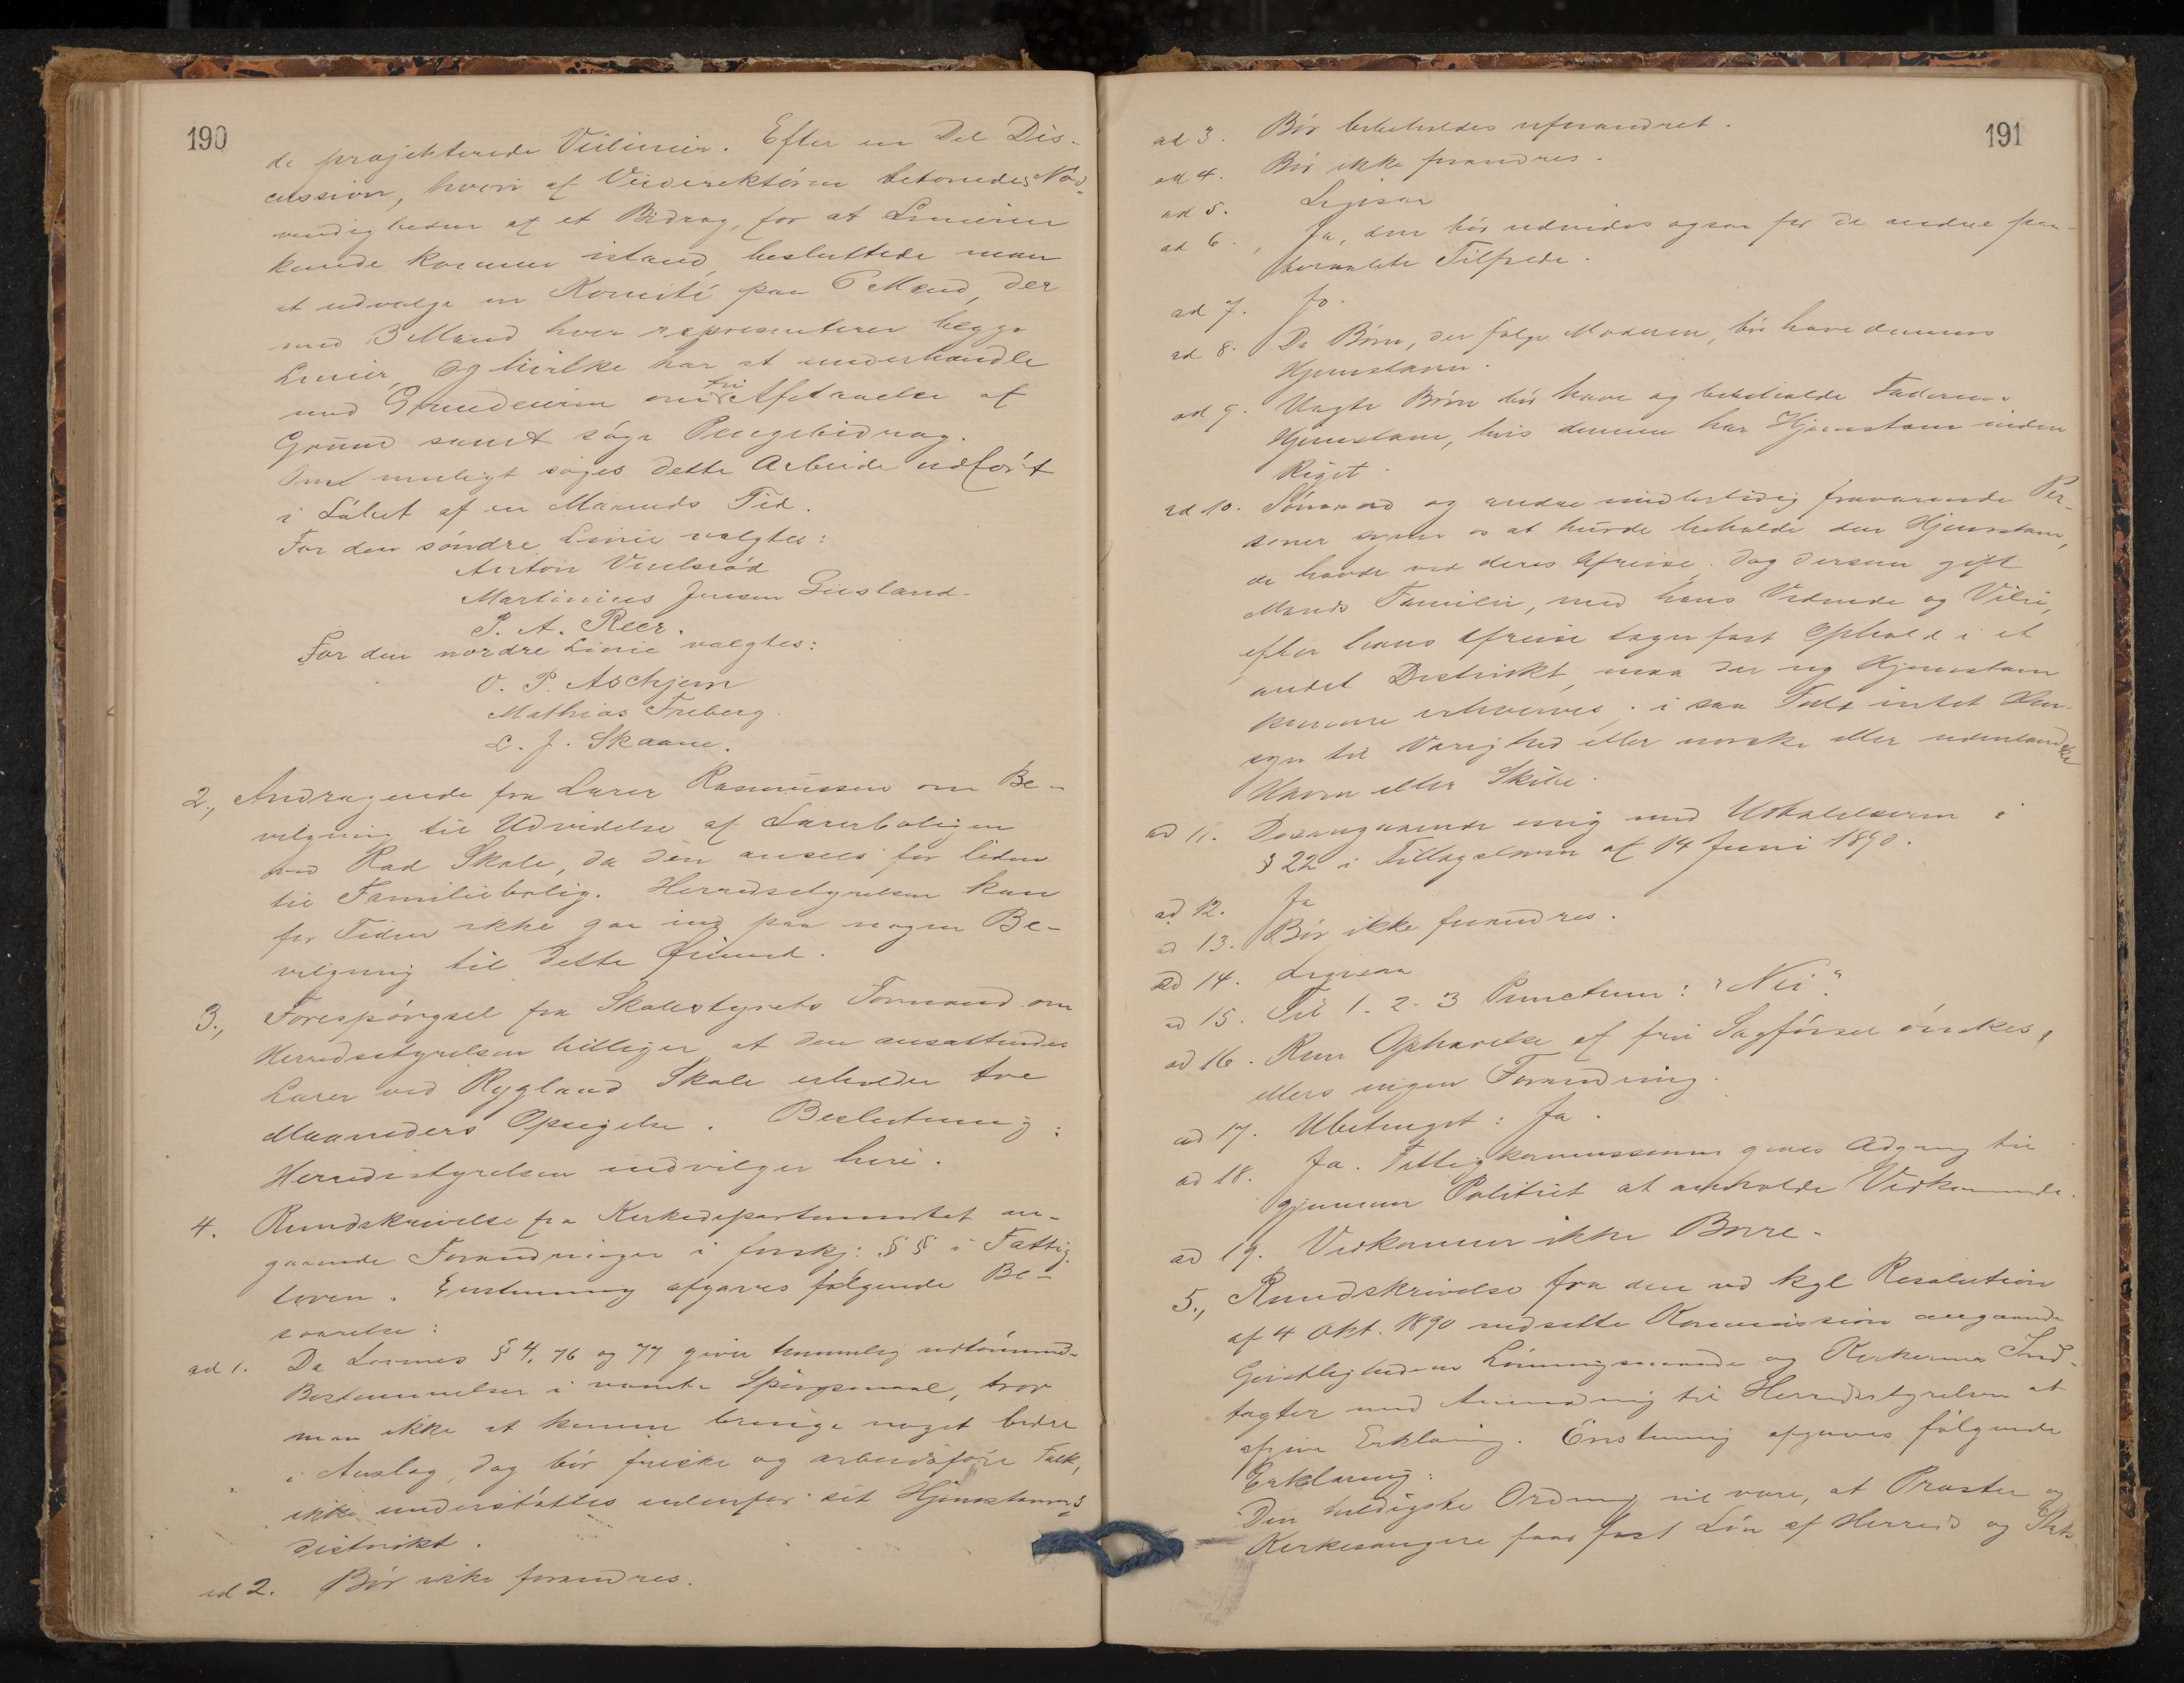 190
de projekterede Veilinier. Efter en Del Dis-
cussion, hvori af Veidirektören betonedes Nöd-
vendigheden af et Bidrag, for at Linierne
kunde komme istand, besluttede man
at udvælge en Komité paa 6 Mand, der
med 3 Mand hver representerer begge
Linier, og hvilke har at underhandle
med Grundeierne om fri Afstaaelse af
Grund samt söge Pengebidrag.
Om muligt söges dette Arbeide udfört
i Löbet af en Maaneds Tid.
For den söndre Linie valgtes:
Anton
Martinius Jensen Gusland.
P. A. Reer.
For den nordre Linie valgtes:
O. P. Aschjem
Mathias Freberg.
L. J. Skaane.
2., Andragende fra Lærer Rasmussen om Be-
vilgning til Udvidelse af Lærerboligen
ved Rød Skole, da den ansees for liden
til Familiebolig. Herredsstyrelsen kan
for Tiden ikke gaa ind paa nogen Be-
vilgning til dette Øiemed.
3., Forespörgsel fra Skolestyrets Formand om
Herredsstyrelsen billiger at den ansættendes
Lærer ved Rygland Skole erholder tre
Maaneders Opsigelse. Beslutning:
Herredsstyrelsen indvilger heri.
4. Rundskrivelse fra Kirkedepartementet an-
gaaende Forandringer i forskj: §§ i Fattig-
loven. Enstemmig afgaves følgende Be-
svarelse:
ad 1. Da Lovens § 4, 76 og 77 giver temmelig udtömmende
Bestemmelser i nævnte Spörgsmaal, tror
man ikke at kunne bringe noget bedre
i Anslag, dog bör friske og arbeidsföre Folk,
ikke understöttes udenfor sit Hjemstavns-
distrikt.
ad 2. Bör ikke forandres.
191
ad 3. Bör bibeholdes uforandret.
ad 4. Bör ikke forandres.
ad 5. Ligesaa
ad 6., Ja, den bör udvides ogsaa for de andre
Tilfælde.
ad 7. Jo.
ad 8. De Börn, der fölge Moderen, bör have dennes
Hjemstavn.
ad 9. Uægte Börn bör have og bibeholde Faderens
Hjemstavn, hvis denne har Hjemstavn inden
Riget.
ad 10. Sömænd og andre midlertidig fraværende Per-
soner synes os at burde beholde den Hjemstavn,
de havde ved deres Afreise. Dog dersom gift
Mands Familie, med hans Vidende og Vilie,
efter hans Afreise tager fast Ophold i et
andet Distrikt, maa der ny Hjemstavn
kunne erhverves; i saa Fald intet Hen-
syn til Varighed eller norske eller udenlandske
Havn eller Skibe.
ad 11. Desangaaende enig med Udtalelserne i
§ 22 i Tillægsloven af 14 Juni 1890.
ad 12. Ja
ad 13. Bör ikke forandres.
ad 14. Ligesaa
ad 15. Til 1. 2. 3 Punctum: "Nei".
ad 16. Kun Ophævelse af fri Sagförsel önskes,
ellers ingen Forandring.
ad 17. Ubetinget: Ja.
ad 18. Ja. Fattigkommissionen gives Adgang til
gjennem Politiet at anholde Vedkommende.
ad 19. Vedkommer ikke Borre.
5., Rundskrivelse fra den ved kgl Resolution
af 4 Okt. 1890 nedsatte Kommission angaaende
Geistlighedens Lönningsmaade og Kirkernes Ind-
tægter med Anmodning til Herredsstyrelsen at
afgive Erklæring. Enstemmig afgaves fölgende
Erklæring:
Den heldigste Ordning vil være, at Præster og
Kirkesangere faar fast Lön af Herred og Stat